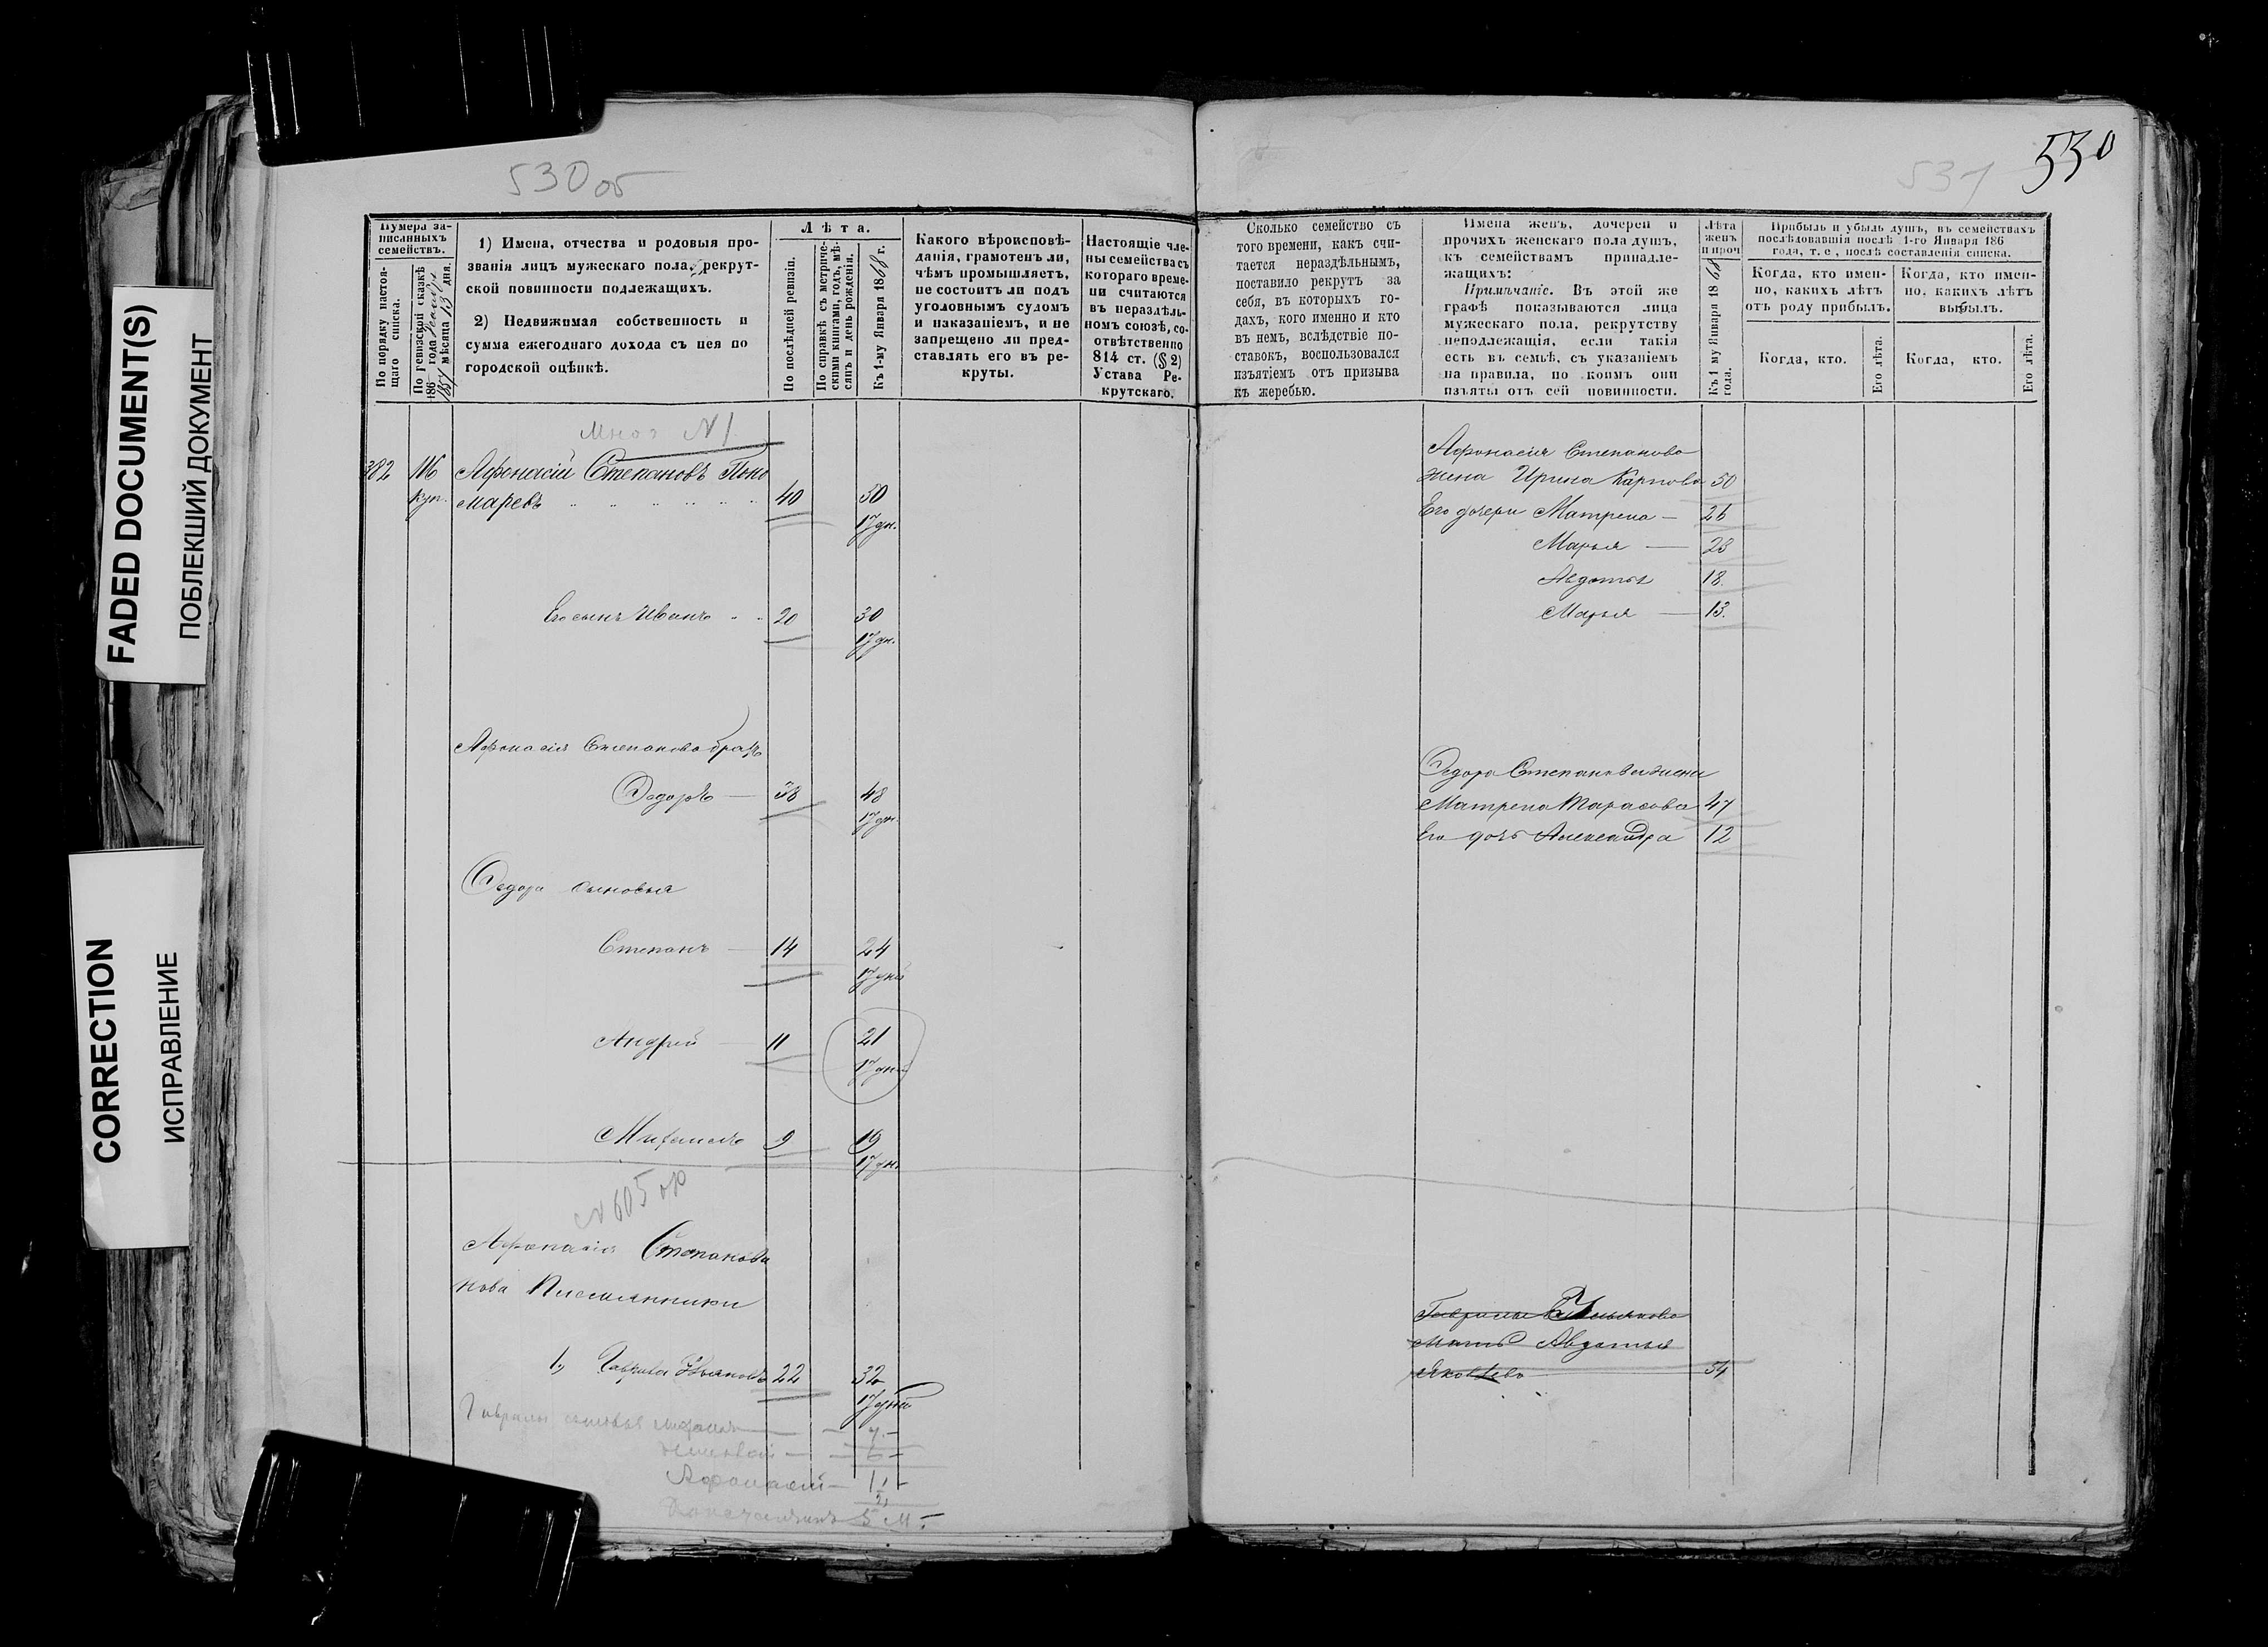 FADED DOCUMENT(S)
ПОБЛЕКШИЙ ДОКУМЕНТ
CORRECTION
ИСПРАВЛЕНИЕ
530 об
Нумера за-
писанныхъ
семействъ.
По порядку настоя-
щаго списка.
По ревизской сказкѣ
186 года
мѣсяца 13 дня.
1) Имена, отчества и родовыя про-
званія лицъ мужескаго пола, рекрут-
ской повинности подлежащихъ.
2) Недвижимая собственность и
сумма ежегоднаго дохода съ нея по
городской оцѣнкѣ.
Лѣта.
По послѣдней ревизіи.
По справкѣ съ метриче-
скими книгами, годъ, мѣ-
сяцъ и день рожденія.
Къ 1-му Января 1868 г.
Какого вѣроисповѣ-
данія, грамотенъ ли,
чѣмъ промышляетъ,
не состоитъ ли подъ
уголовнымъ судомъ
и наказаніемъ, и не
запрещено ли пред-
ставлять его въ ре-
круты.
Настоящіе чле-
ны семейства съ
котораго време-
ни считаются
въ нераздѣль-
номъ союзѣ, со-
отвѣтственно
814 ст. (§ 2)
Устава Ре-
крутскаго.
N 1
382 116 Афонасій Степановъ Поно
куп. маревъ 40 50
17 дн.
Его сынъ Иванъ 20 30
17 дн.
Афонасія Степанова братъ
Ѳедоръ 38 48
17 дн.
Ѳедора сыновья
Степанъ 14 24
17 дней
Андрей 11 21
17 дней
Михаилъ 9 19
17 дн.
N 605
Афонасія Степанова
нова Племянники
1, Гаврила Ульяновъ 22 32
17 дней
Гаврилы сыновья
Афонасій
5 м.
531
530
Сколько семейство съ
того времени, какъ счи-
тается нераздѣльнымъ,
поставило рекрутъ за
себя, въ которыхъ го-
дахъ, кого именно и кто
въ немъ, вслѣдствіе по-
ставокъ, воспользовался
изъятіемъ отъ призыва
къ жеребью.
Имена женъ, дочерей и
прочихъ женскаго пола душъ,
къ семействамъ принадле-
жащихъ:
Примѣчаніе. Въ этой же
графѣ показываются лица
мужескаго пола, рекрутству
неподлежащія, если такія
есть въ семьѣ, съ указаніемъ
на правила, по коимъ они
изъяты отъ сей повинности.
Лѣта
женъ
и проч
Къ 1 му Января 1868
года.
Прибыль и убыль душъ, въ семействахъ
послѣдовавшія послѣ 1-го Января 186
года, т. е, послѣ составленія списка.
Когда, кто имен-
но, какихъ лѣтъ
отъ роду прибылъ.
Когда, кто имен-
но, какихъ лѣтъ
выбылъ.
Когда, кто.
Его лѣта.
Когда, кто.
Его лѣта.
Афонасія Степанова
жена Ирина Карпова 50
Его дочери Матрена 26
Марья 23
Авдотья 18
Марья 13.
Ѳедора Степанова жена
Матрена Тарасова 47
Его дочь Александра 12
Гаврилы Ульянова
мать Авдотья
Яковлева 54